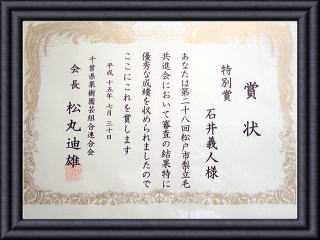 賞状
特別賞
石井義人様
あなたは第二十八回松戸市梨立毛
共進会において審査の結果特に
優秀な成績を収められましたので
ここにこれを賞します
平成十五年七月三十日
千葉県果樹園芸組合連合会
会長 松丸迪雄